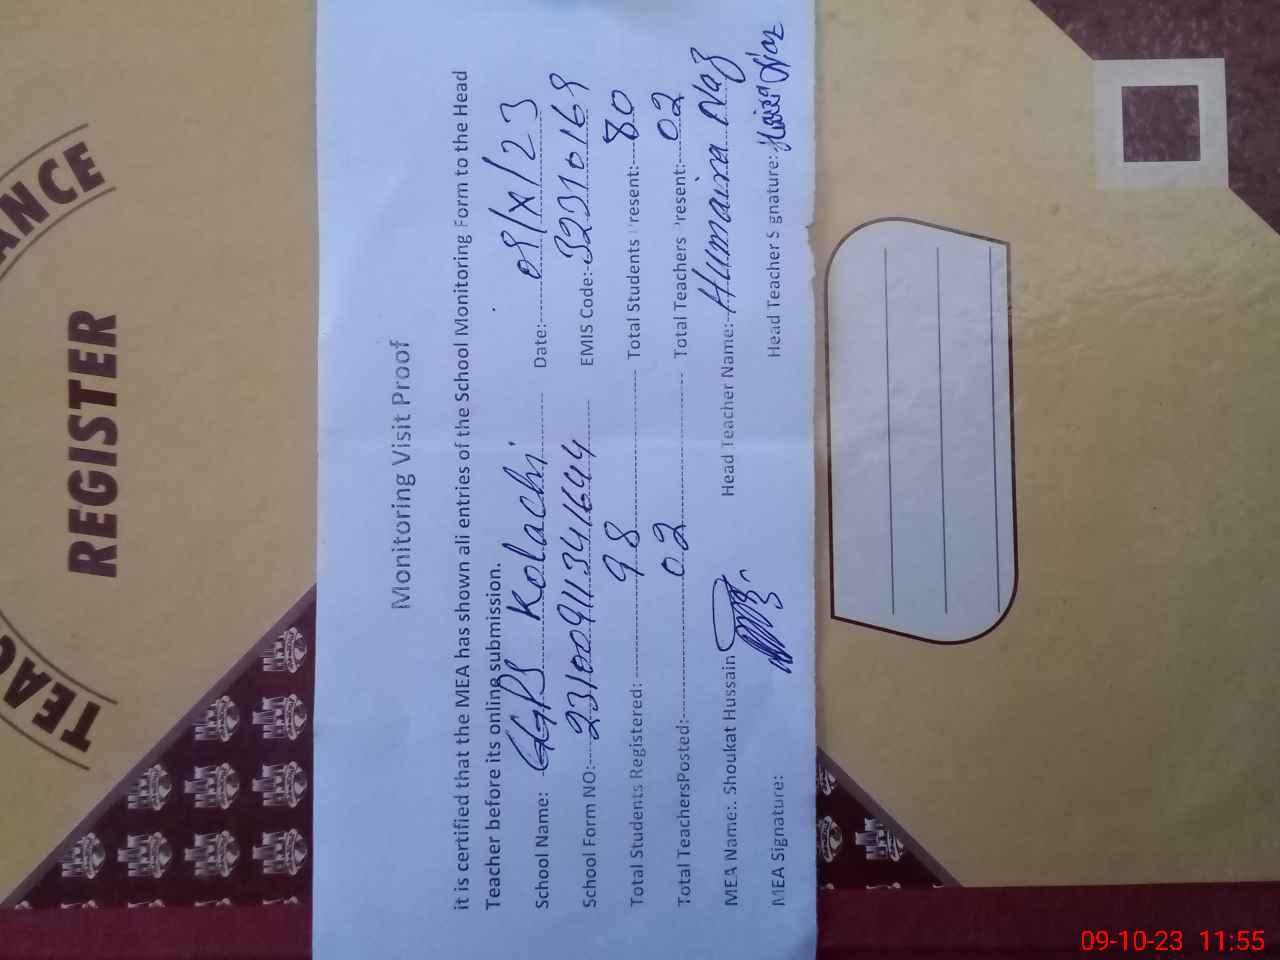 TEAC ANCE
REGISTER
Monitoring Visit Proof
it is certified that the MEA has shown all entries of the School Monitoring Form to the Head
Teacher before its online submission.
School Name: GGPS Kolachi Date: 09/X/23
School Form NO: 23100911341644 EMIS Code: 32310169
Total Students Registered: 98 Total Students Present: 80
Total TeachersPosted: 02 Total Teachers Present: 02
MEA Name:. Shoukat Hussain Head Teacher Name: Humaira Naz
MEA Signature: Head Teacher Signature: Humaira Naz
09-10-23 11:55